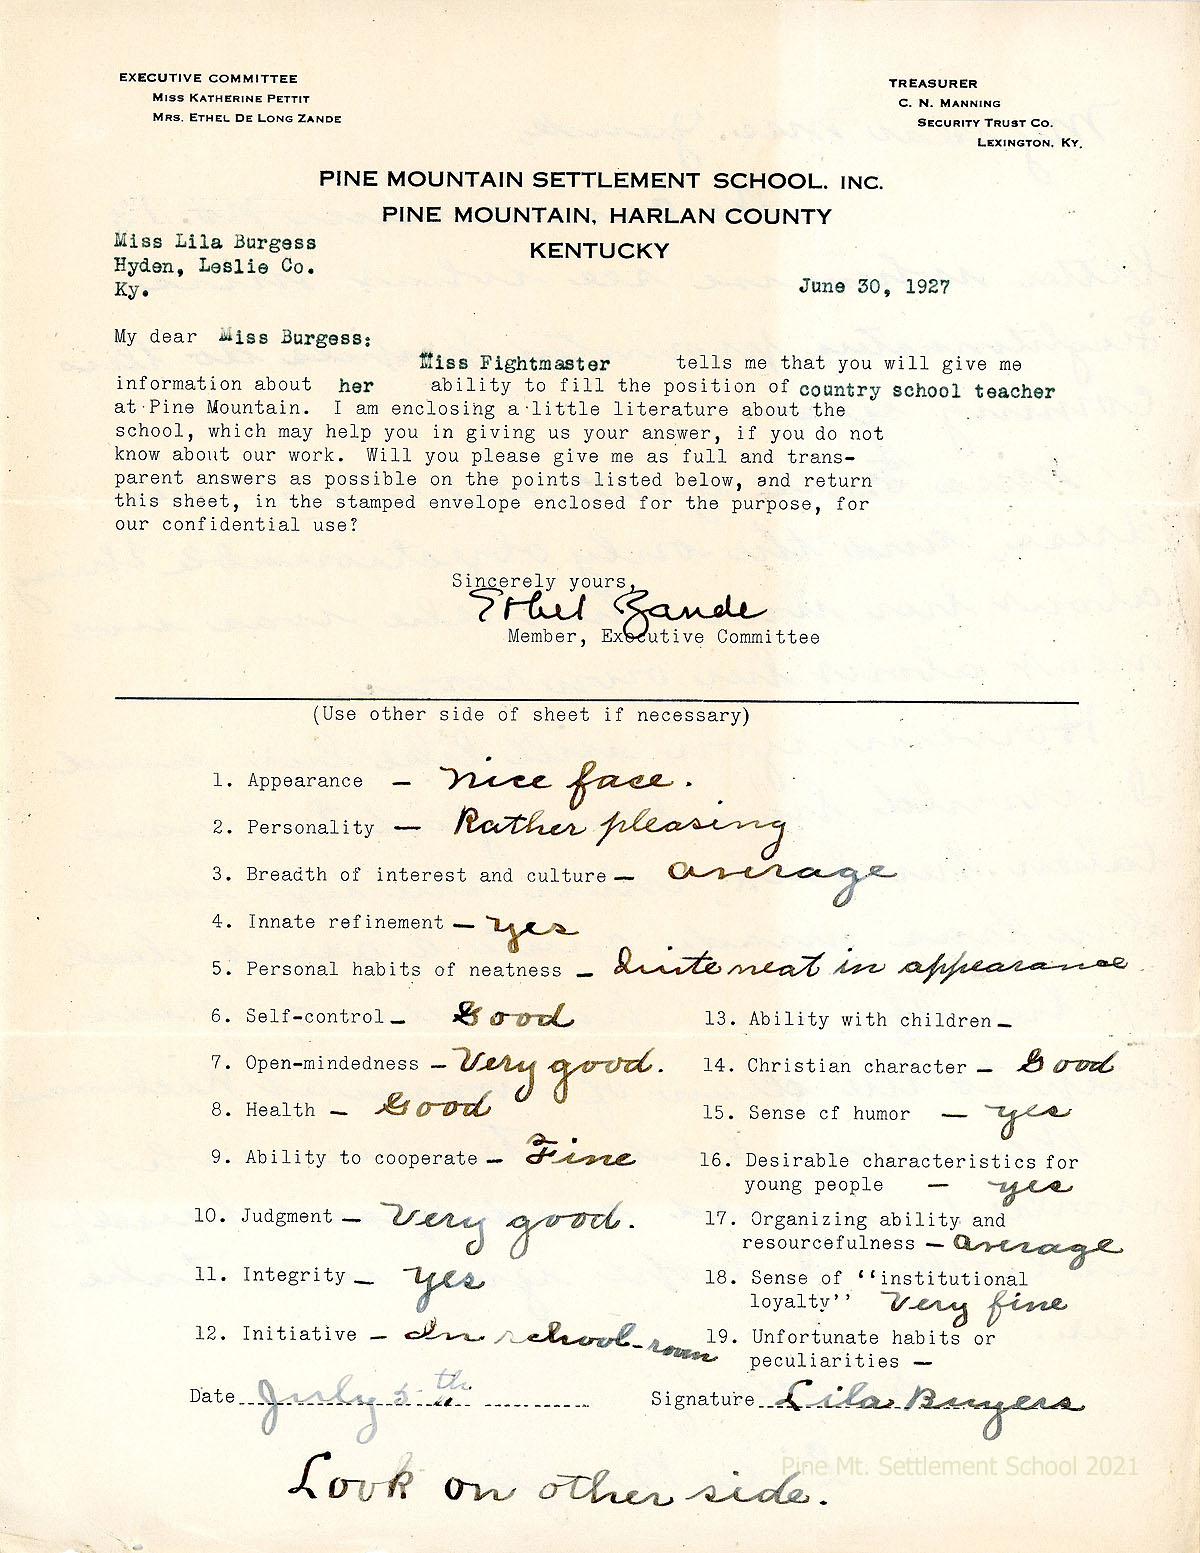 EXECUTIVE COMMITTEE
MISS KATHERINE PETTIT
MRS. ETHEL DE LONG ZANDE
TREASURER
C. N. MANNING
SECURITY TRUST CO.
LEXINGTON, KY.
PINE MOUNTAIN SETTLEMENT SCHOOL. INC.
PINE MOUNTAIN, HARLAN COUNTY
KENTUCKY
Miss Lila Burgess
Hyden, Leslie Co.
Ky.
June 30, 1927
My dear Miss Burgess:
Miss Fightmaster tells me that you will give me
information about her ability to fill the position of country school teacher
at Pine Mountain. I am enclosing a little literature about the
school, which may help you in giving us your answer, if you do not
know about our work. Will you please give me as full and trans-
parent answers as possible on the points listed below, and return
this sheet, in the stamped envelope enclosed for the purpose, for
our confidential use?
Sincerely yours,
Ethel Zande
Member, Executive Committee
(Use other side of sheet if necessary)
1. Appearance — Nice face.
2. Personality — Rather pleasing
3. Breadth of interest and culture — average
4. Innate refinement — yes
5. Personal habits of neatness — Quite neat in appearance
6. Self-control — Good
7. Open-mindedness — Very good.
8. Health — Good
9. Ability to cooperate — Fine
10. Judgment — Very good.
11. Integrity — yes
12. Initiative — In school-room
13. Ability with children —
14. Christian character — Good
15. Sense of humor — yes
16. Desirable characteristics for
young people — yes
17. Organizing ability and
resourcefulness — average
18. Sense of "institutional
loyalty" Very fine
19. Unfortunate habits or
peculiarities —
Date July 5th
Signature Lila Burgess
Look on other side.
Pine Mt. Settlement School 2021